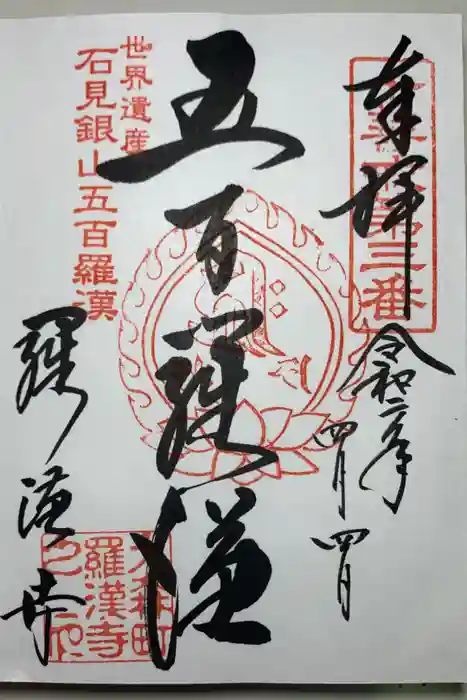 奉拝
令和二年
四月四日
五百羅漢
世界遺産
石見銀山五百羅漢
羅漢寺
大森町
羅漢寺